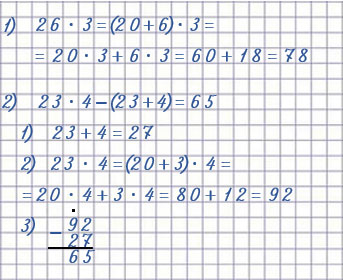 1) 26 · 3 = (20+6) · 3 =
= 20 · 3 + 6 · 3 = 60 + 18 = 78
2) 23 · 4 – (23+4) = 65
1) 23 + 4 = 27
2) 23 · 4 = (20+3) · 4 =
= 20 · 4 + 3 · 4 = 80 + 12 = 92
3) – 92
27
65